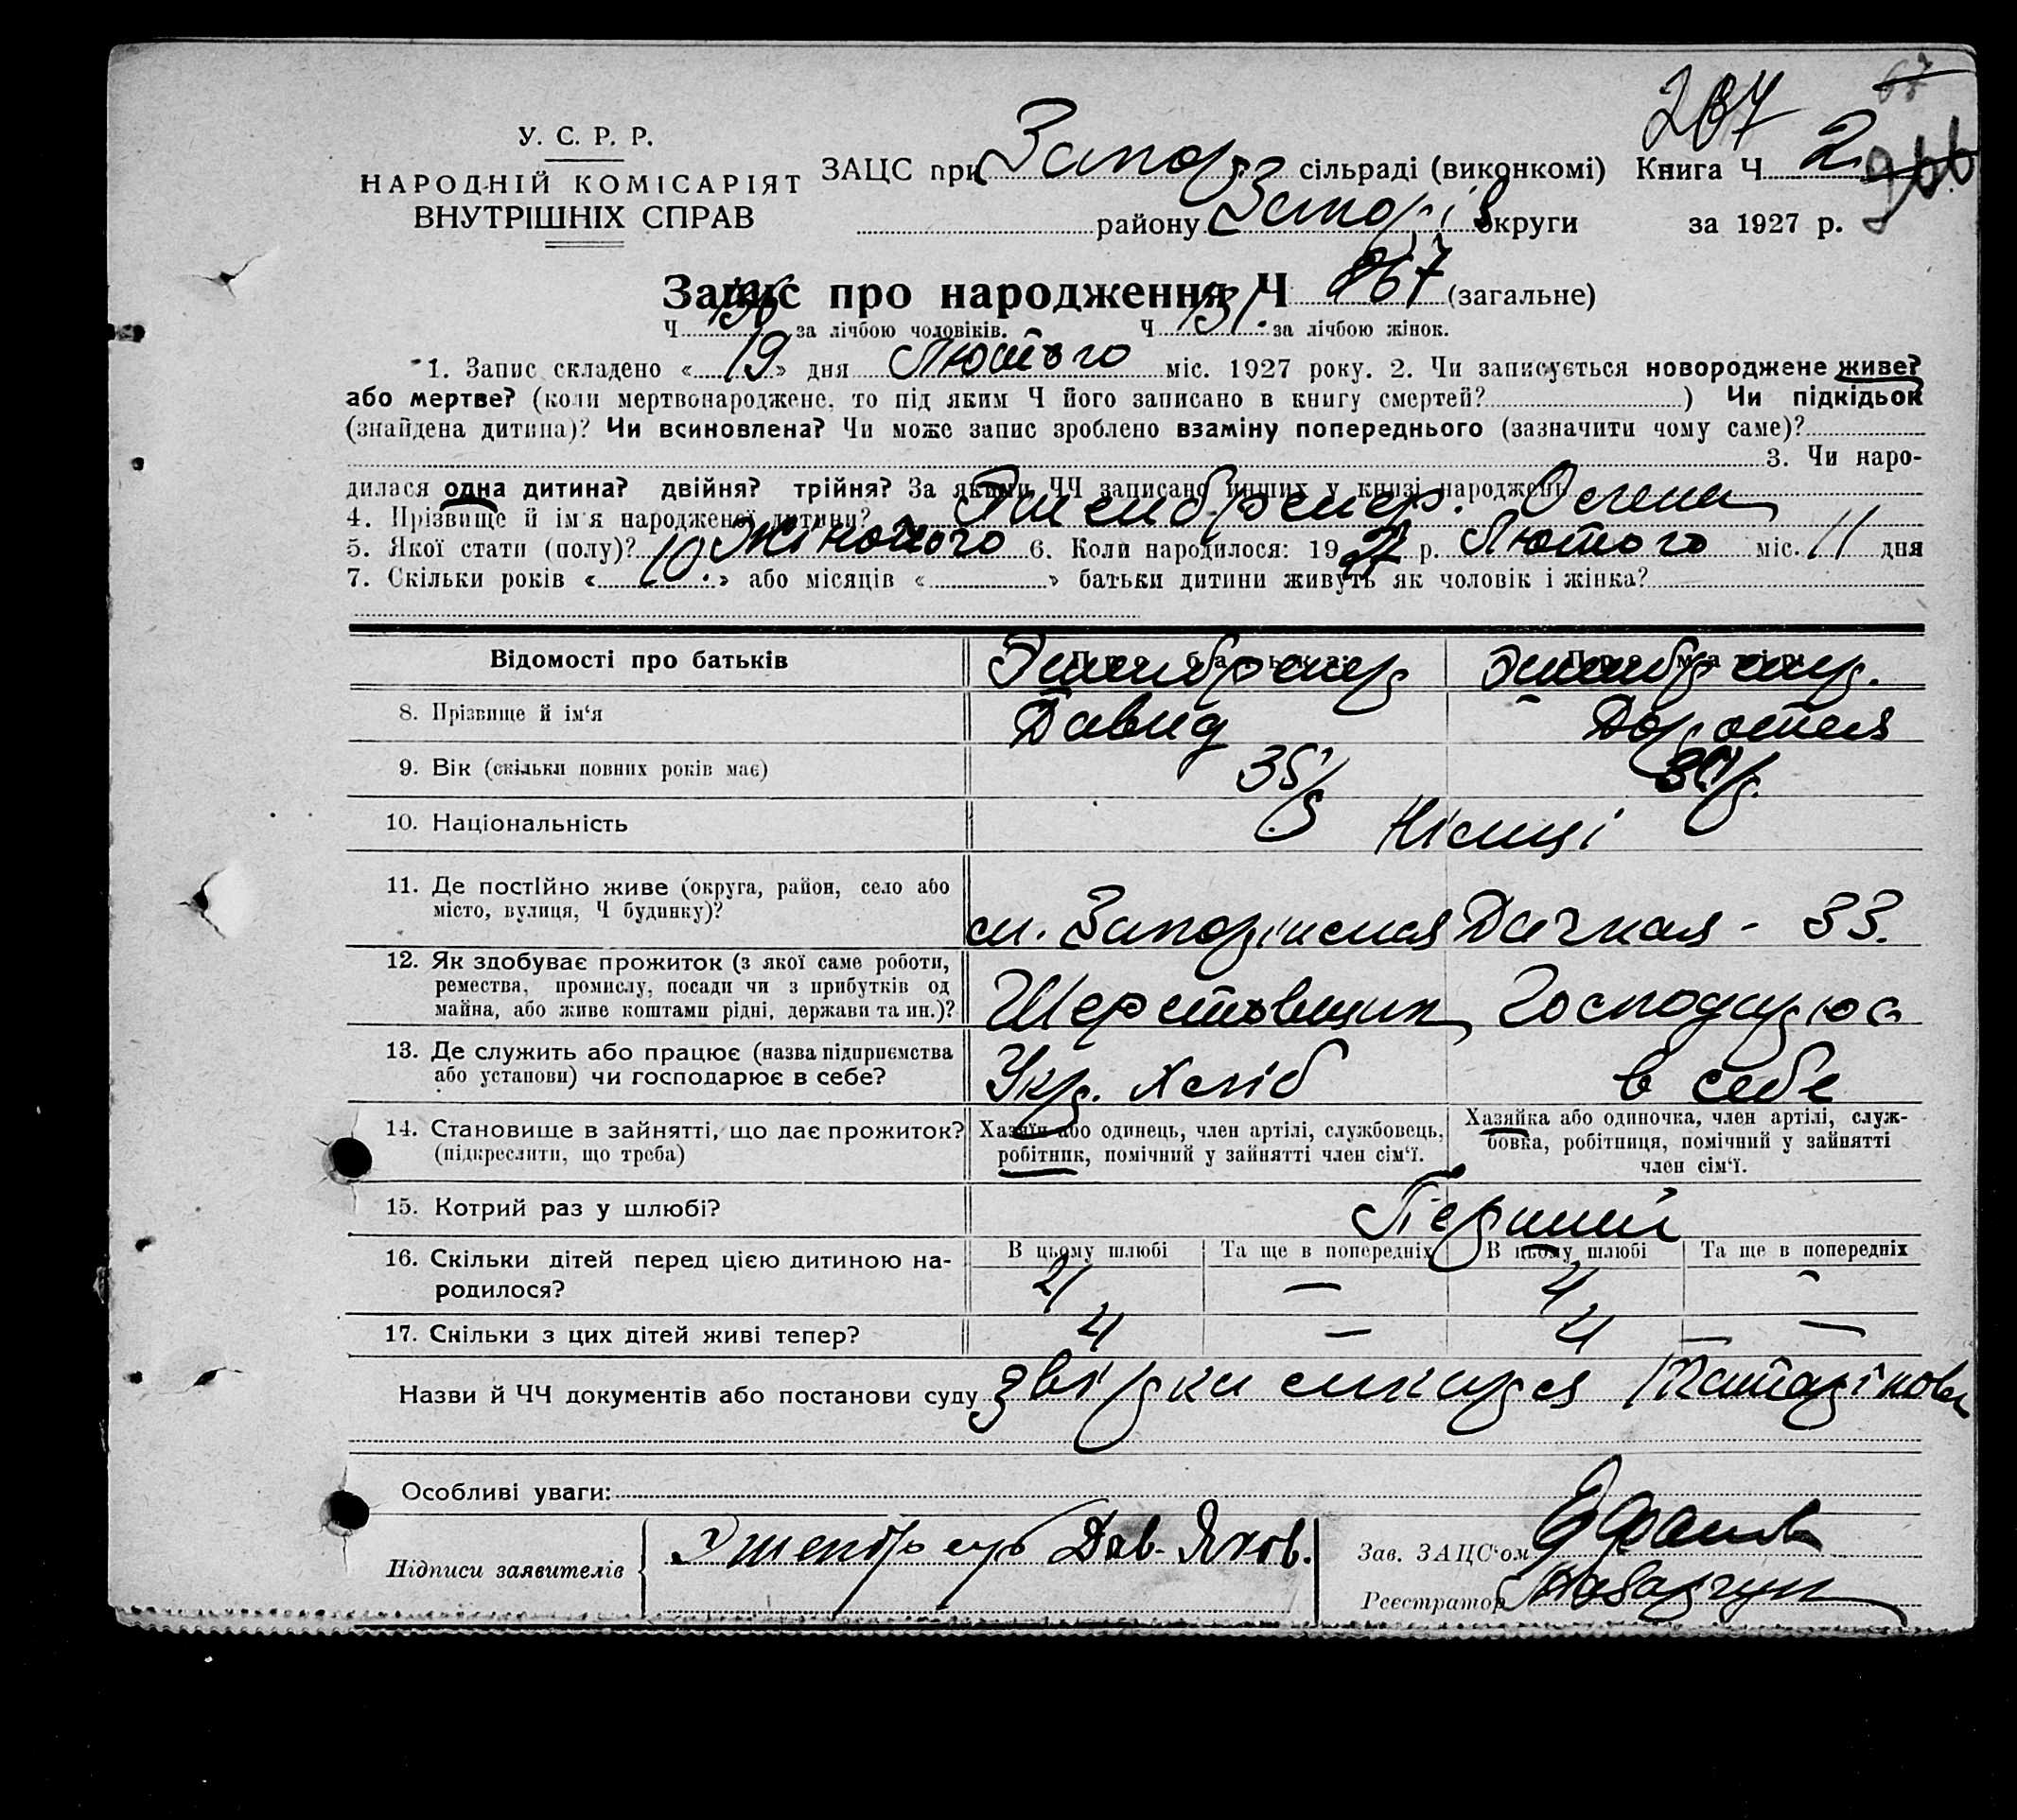 267
У. С. Р. Р.
НАРОДНІЙ КОМІСАРІЯТ
ВНУТРІШНІХ СПРАВ
ЗАЦС при Запоріз сільраді (виконкомі) Книга Ч 2 266
району Запорів округи за 1927 р.
Запис про народження Ч 267 (загальне)
Ч 136 за лічбою чоловіків. Ч 131. за лічбою жінок.
1. Запис складено « 19 » дня Лютого міс. 1927 року. 2. Чи записується новороджене живе?
або мертве? (коли мертвонароджене, то під яким Ч його записано в книгу смертей? ) Чи підкідьок
(знайдена дитина)? Чи всиновлена? Чи може запис зроблено взаміну попереднього (зазначити чому саме)?
3. Чи наро-
дилася одна дитина? двійня? трійня? За якими ЧЧ записано инших у книзі народжень
4. Прізвище й ім'я народженої дитини? Эпенбренер. Олена
5. Якої стати (полу)? Жіночого 6. Коли народилося: 1927 р. Лютого міс. 11 дня
7. Скільки років « 10. » або місяців « » батьки дитини живуть як чоловік і жінка?
Відомості про батьків
8. Прізвище й ім'я Давид Доротея
9. Вік (скільки повних років має) 35 р
10. Національність Німці
11. Де постійно живе (округа, район, село або
місто, вулиця, Ч будинку)? м. Запоріжжя Дачная - 33.
12. Як здобуває прожиток (з якої саме роботи,
ремества, промислу, посади чи з прибутків од
майна, або живе коштами рідні, держави та ин.)? Шерстовщик Господарює
13. Де служить або працює (назва підприємства
або установи) чи господарює в себе? Укр. Хліб в себе
14. Становище в зайнятті, що дає прожиток?
(підкреслити, що треба)
Хазяїн або одинець, член артілі, службовець,
робітник, помічний у зайнятті член сім'ї.
Хазяйка або одиночка, член артілі, служ-
бовка, робітниця, помічний у зайнятті
член сім'ї.
15. Котрий раз у шлюбі? Перший
16. Скільки дітей перед цією дитиною на-
родилося?
В цьому шлюбі Та ще в попередніх В цьому шлюбі Та ще в попередніх
4 — 4 —
17. Скільки з цих дітей живі тепер? 4 — 4 —
Назви й ЧЧ документів або постанови суду
Особливі уваги:
Підписи заявителів Дав. Яков.
Зав. ЗАЦС'ом
Реєстратор